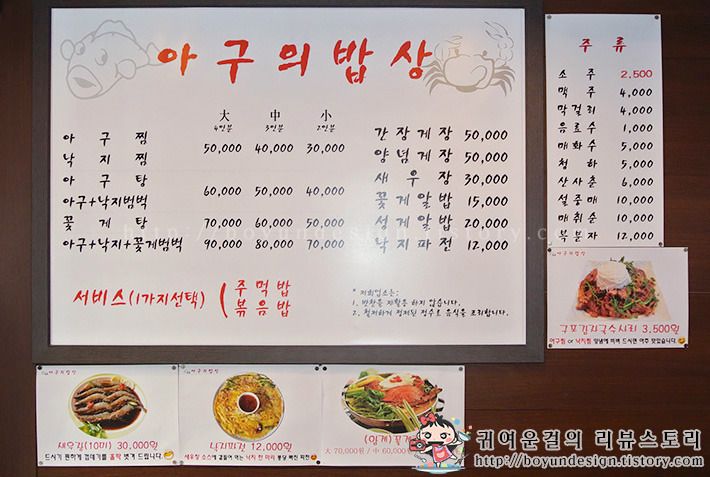 아구의밥상
大 中 小
4인분 3인분 2인분
아구찜
50,000 40,000 30,000
낙지찜
아구탕
60,000 50,000 40,000
아구+낙지범벅
꽃게탕 70,000 60,000 50,000
아구+낙지+꽃게범벅 90,000 80,000 70,000
간장게장 50,000
양념게장 50,000
새우장 30,000
꽃게알밥 15,000
성게알밥 20,000
낙지파전 12,000
서비스(1가지선택) ( 주먹밥
볶음밥
* 저희업소는:
1. 반찬을 재활용 하지 않습니다.
2. 철저하게 정제된 정수로 음식을 조리합니다.
주류
소주 2,500
맥주 4,000
막걸리 4,000
음료수 1,000
매화수 5,000
청하 5,000
산사춘 6,000
설중매 10,000
매취순 10,000
복분자 12,000
아구의밥상
구포김치국수사리 3,500원
아구찜 or 낙지찜 양념에 비벼 드시면 아주 맛있습니다.
아구의밥상
새우장(10미) 30,000원
드시기 편하게 껍데기를 홀딱 벗겨 드립니다.
아구의밥상
낙지파전 12,000원
새우장 소스에 곁들여 먹는 낙지 한 마리 퐁당 빠진 파전
(암게)꽃게
大 70,000원 / 中 60,000
http://boyundesign.tistory.com
귀여운걸의 리뷰스토리
http://boyundesign.tistory.com